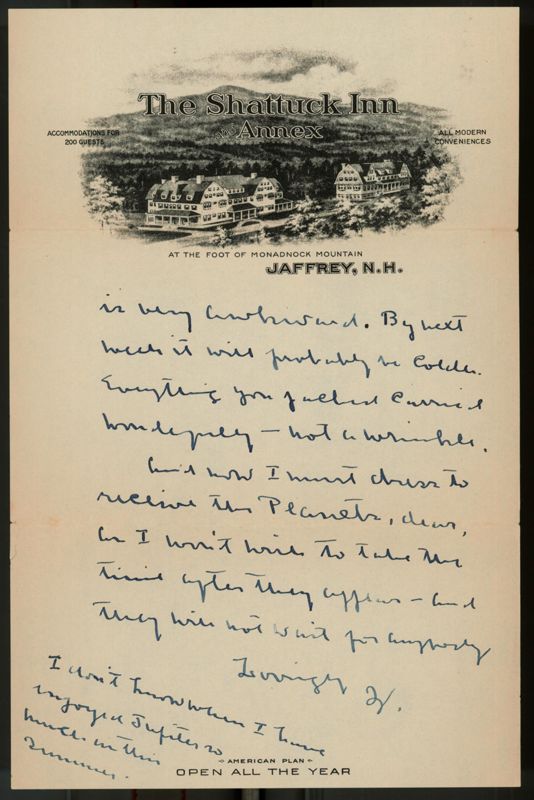 The Shattuck Inn
AND Annex
ACCOMMODATIONS FOR
200 GUESTS
ALL MODERN
CONVENIENCES
AT THE FOOT OF MONADNOCK MOUNTAIN
JAFFREY, N.H.
is very awkward. By next
week it will probably be colder.
Everything you packed carried
wonderfully — not a wrinkle.
And now I must dress to
receive the Planets, dear,
as I won't wish to take the
time after they appear — and
they will not wait for anybody
Lovingly W.
I don't know when I have
enjoyed Jupiter so
much as this
summer.
AMERICAN PLAN
OPEN ALL THE YEAR